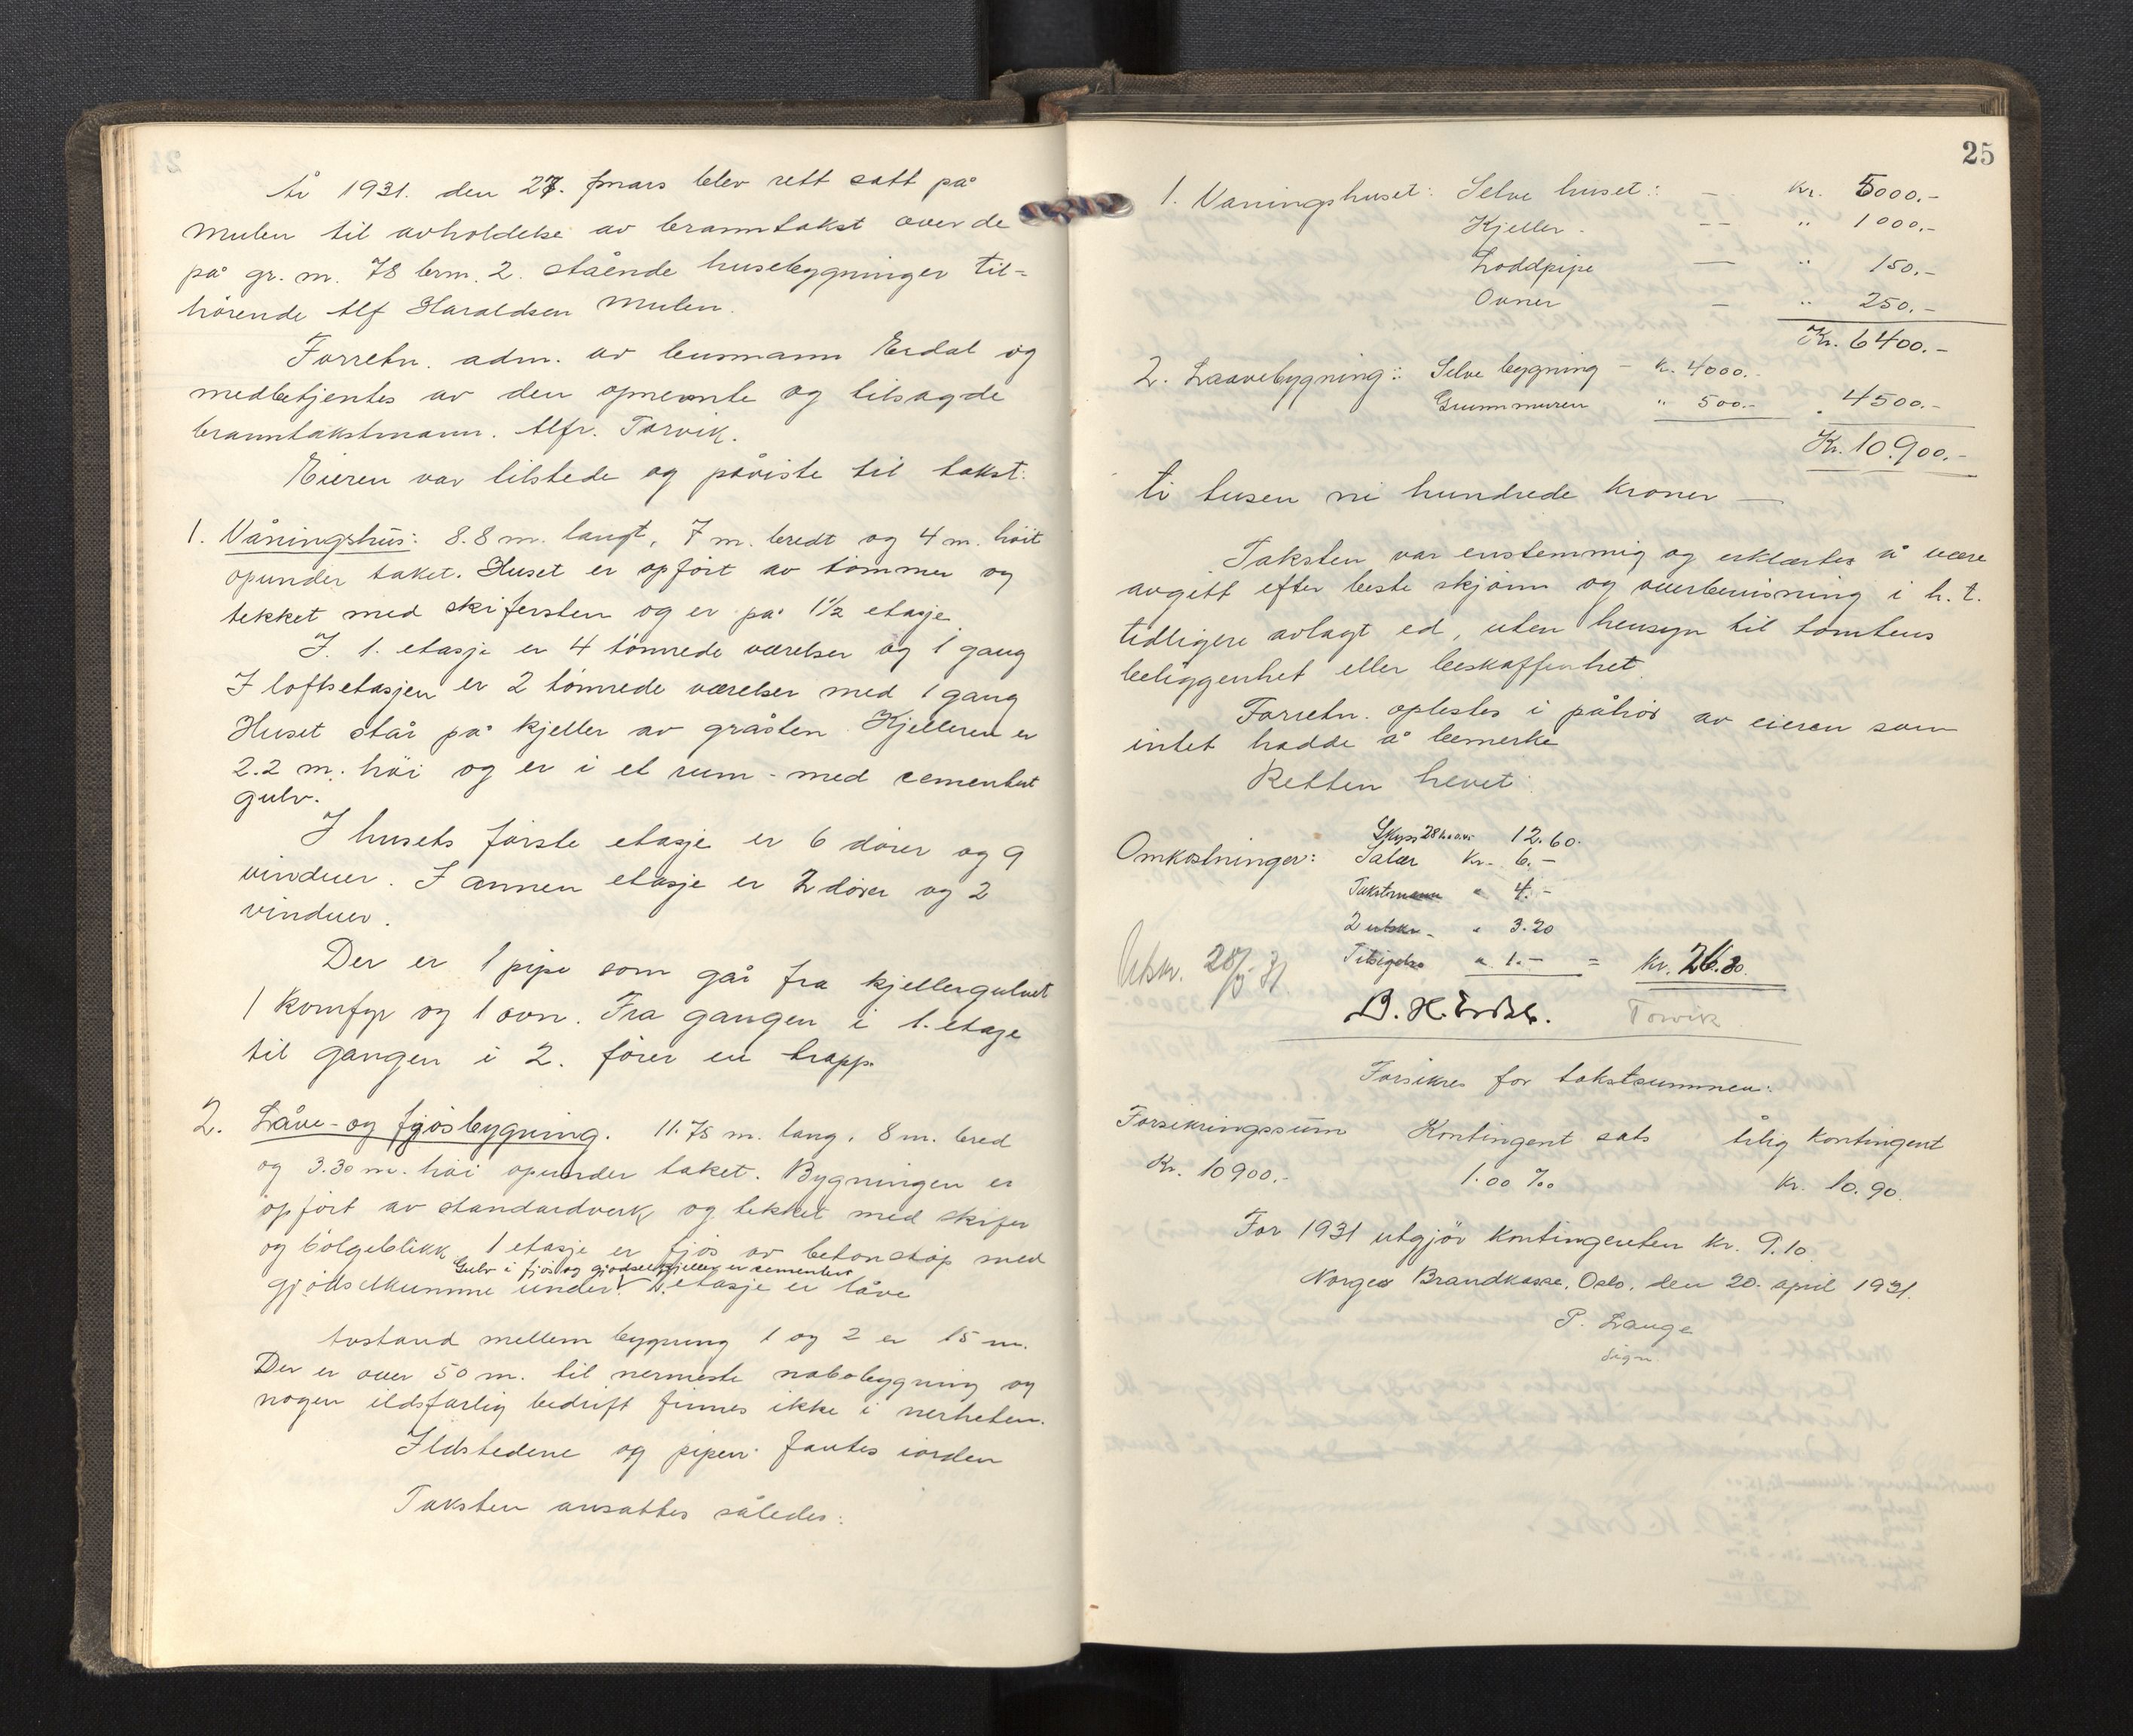 År 1931. den 27. mars blev rett satt på
Mulen til avholdelse av branntakst over de
på gr. m. 78 brm. 2. stående husebygninger til-
hörende Alf Haraldsen Mulen.
Forretn. adm. av lensmann Erdal og
medbetjentes av den opnevnte og tilsagde
branntakstmann. Alfr. Torvik.
Eieren var tilstede og påviste til takst:
1. Våningshus: 8.8 m. langt, 7 m. bredt og 4 m. höit
opunder taket. Huset er opfört av tömmer og
tekket med skifersten og er på 1½ etasje.
I 1. etasje er 4 tömrede værelser og 1 gang
I loftsetasjen er 2 tömrede værelser med 1 gang
Huset står på kjeller av gråsten. Kjelleren er
2.2 m. höi og er i et rum - med cementert
gulv.
I husets förste etasje er 6 dörer og 9
vinduer. I annen etasje er 2 dörer og 2
vinduer.
Der er 1 pipe som går fra kjellergulvet
1 komfyr og 1 ovn. Fra gangen i 1. etage
til gangen i 2. förer en trapp.
2. Låve- og fjösbygning. 11.75 m. lang, 8 m. bred
og 3.30 m. höi opunder taket. Bygningen er
opfört av standardverk og tekket med skifer
og bölgeblikk. 1 etasje er fjös av betonstöp med
Gulv i fjös og gjödselkjeller er cementert
gjödselkumme under. V 2. etasje er låve
Avstand mellem bygning 1 og 2 er 15 m.
Der er over 50 m. til nermeste nabobygning og
nogen ildsfarlig bedrift finnes ikke i nerheten.
Ildstedene og pipen fantes iorden
Taksten ansattes således:
25
1. Vaningshuset: Selve huset: — Kr. 5000.-
Kjeller. -- " 1000.-
Loddpipe — " 150.-
Ovner — " 250.-
Kr. 6400.-
2. Laavebygning: Selve bygning - Kr. 4000.-
Grunnmuren " 500.- 4500.-
Kr. 10.900.-
ti tusen ni hundrede kroner —
Taksten var enstemmig og erklærtes å være
avgitt efter beste skjönn og overbevisning i h. t.
tidligere avlagt ed, uten hensyn til tomtens
beliggenhet eller beskaffenhet.
Forretn. oplestes i påhör av eieren som
intet hadde å bemerke
Retten hevet.
Skyss 28 12.60.
Omkostninger: Salær Kr. 6.-
Takstmann " 4.-
2 utskr. " 3.20
Tilsigelse " 1.- = Kr. 26.80
Utskr. 28/5 31.
B. H. Erdal. Torvik
Forsikres for takstsummen:
Forsikringssum Kontingent sats årlig kontingent
Kr. 10900.- 1.00 ‰ Kr. 10.90.
For 1931 utgjör kontingenten Kr. 9.10
Norges Brandkasse, Oslo, den 20. april 1931.
P. Lange
sign.